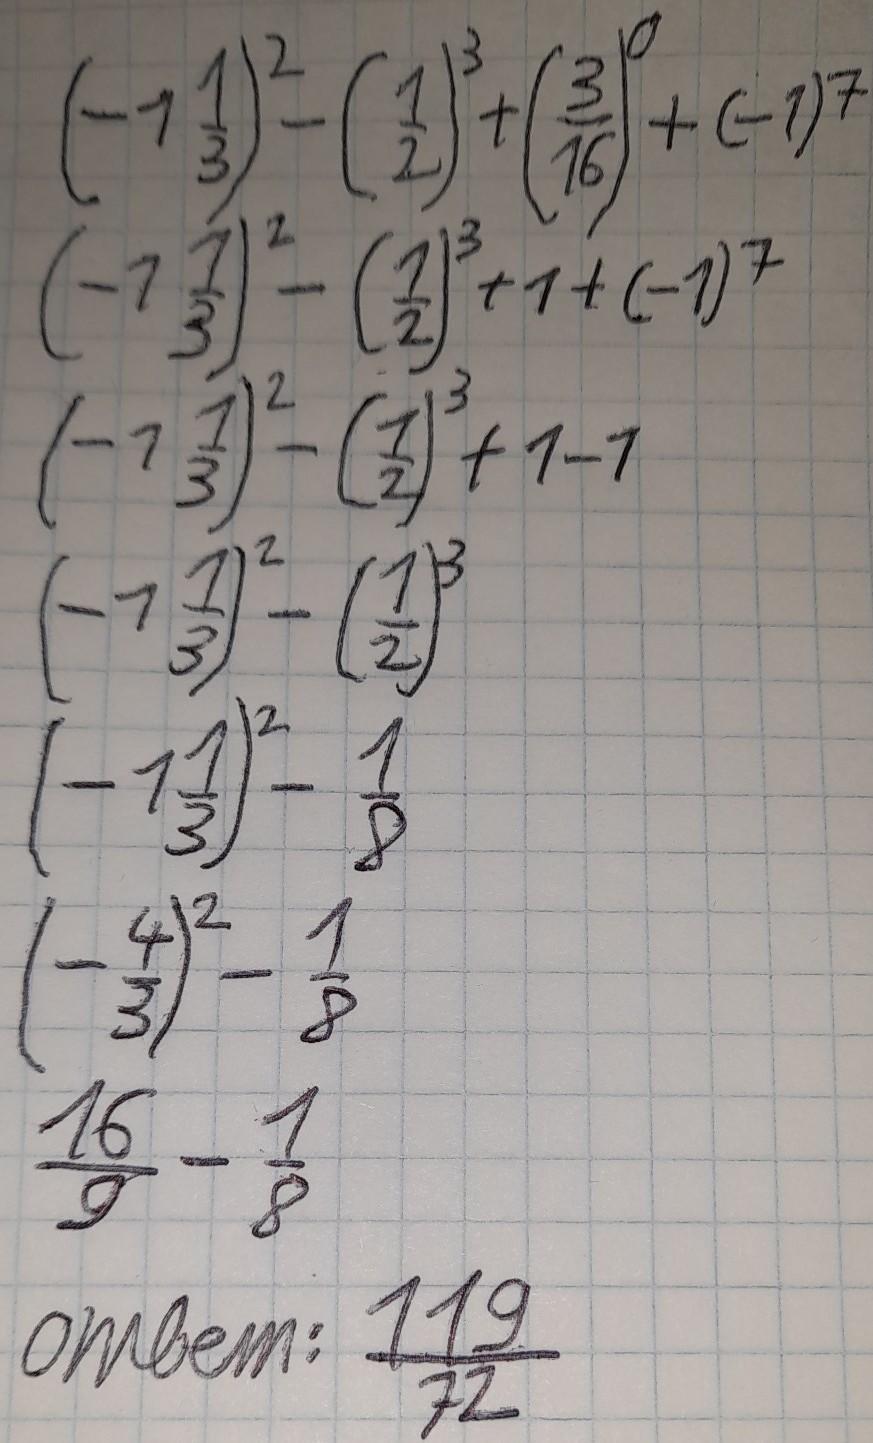 (-1 1/3)² - (1/2)³ + (3/16)⁰ + (-1)⁷
(-1 1/3)² - (1/2)³ + 1 + (-1)⁷
(-1 1/3)² - (1/2)³ + 1 - 1
(-1 1/3)² - (1/2)³
(-1 1/3)² - 1/8
(-4/3)² - 1/8
16/9 - 1/8
ответ: 119/72